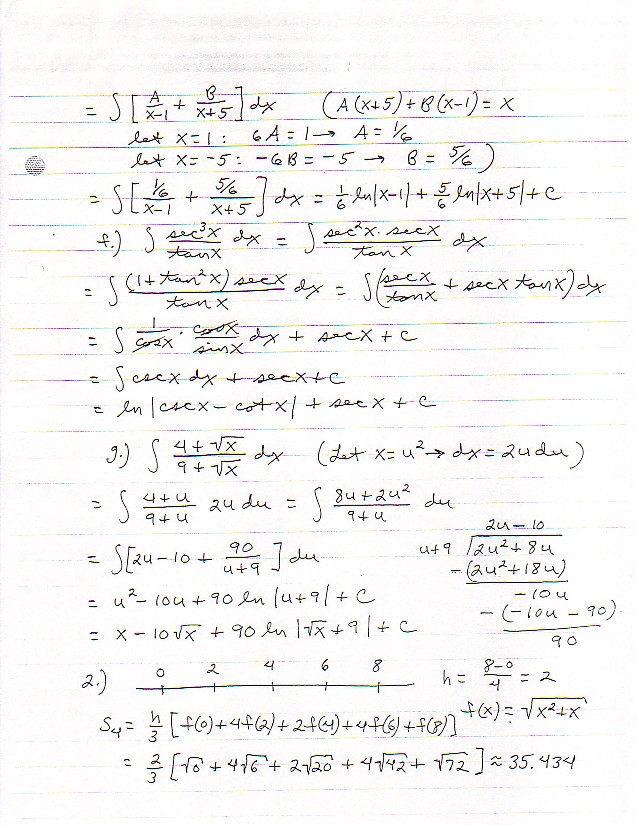 = ∫ [ A/(x-1) + B/(x+5) ] dx   ( A(x+5) + B(x-1) = x
let x=1 : 6A = 1 → A = 1/6
let x=-5 : -6B = -5 → B = 5/6 )
= ∫ [ (1/6)/(x-1) + (5/6)/(x+5) ] dx = 1/6 ln|x-1| + 5/6 ln|x+5| + c
f.) ∫ sec³x/tanx dx = ∫ (sec²x · secx)/tanx dx
= ∫ ((1+tan²x) secx)/tanx dx = ∫ ( secx/tanx + secx tanx ) dx
= ∫ 1/cosx · cosx/sinx dx + secx + c
= ∫ cscx dx + secx + c
= ln |cscx - cotx| + secx + c
g.) ∫ (4+√x)/(9+√x) dx   ( Let x = u² → dx = 2u du )
= ∫ (4+u)/(9+u) 2u du = ∫ (8u+2u²)/(9+u) du
2u - 10
= ∫ [ 2u - 10 + 90/(u+9) ] du   u+9 √2u² + 8u
-(2u² + 18u)
= u² - 10u + 90 ln |u+9| + c   -10u
-(-10u - 90)
= x - 10√x + 90 ln |√x + 9| + c   90
2.) 0 2 4 6 8   h = (8-0)/4 = 2
S₄ = h/3 [ f(0) + 4f(2) + 2f(4) + 4f(6) + f(8) ]   f(x) = √(x²+x)
= 2/3 [ √0 + 4√6 + 2√20 + 4√42 + √72 ] ≈ 35.434